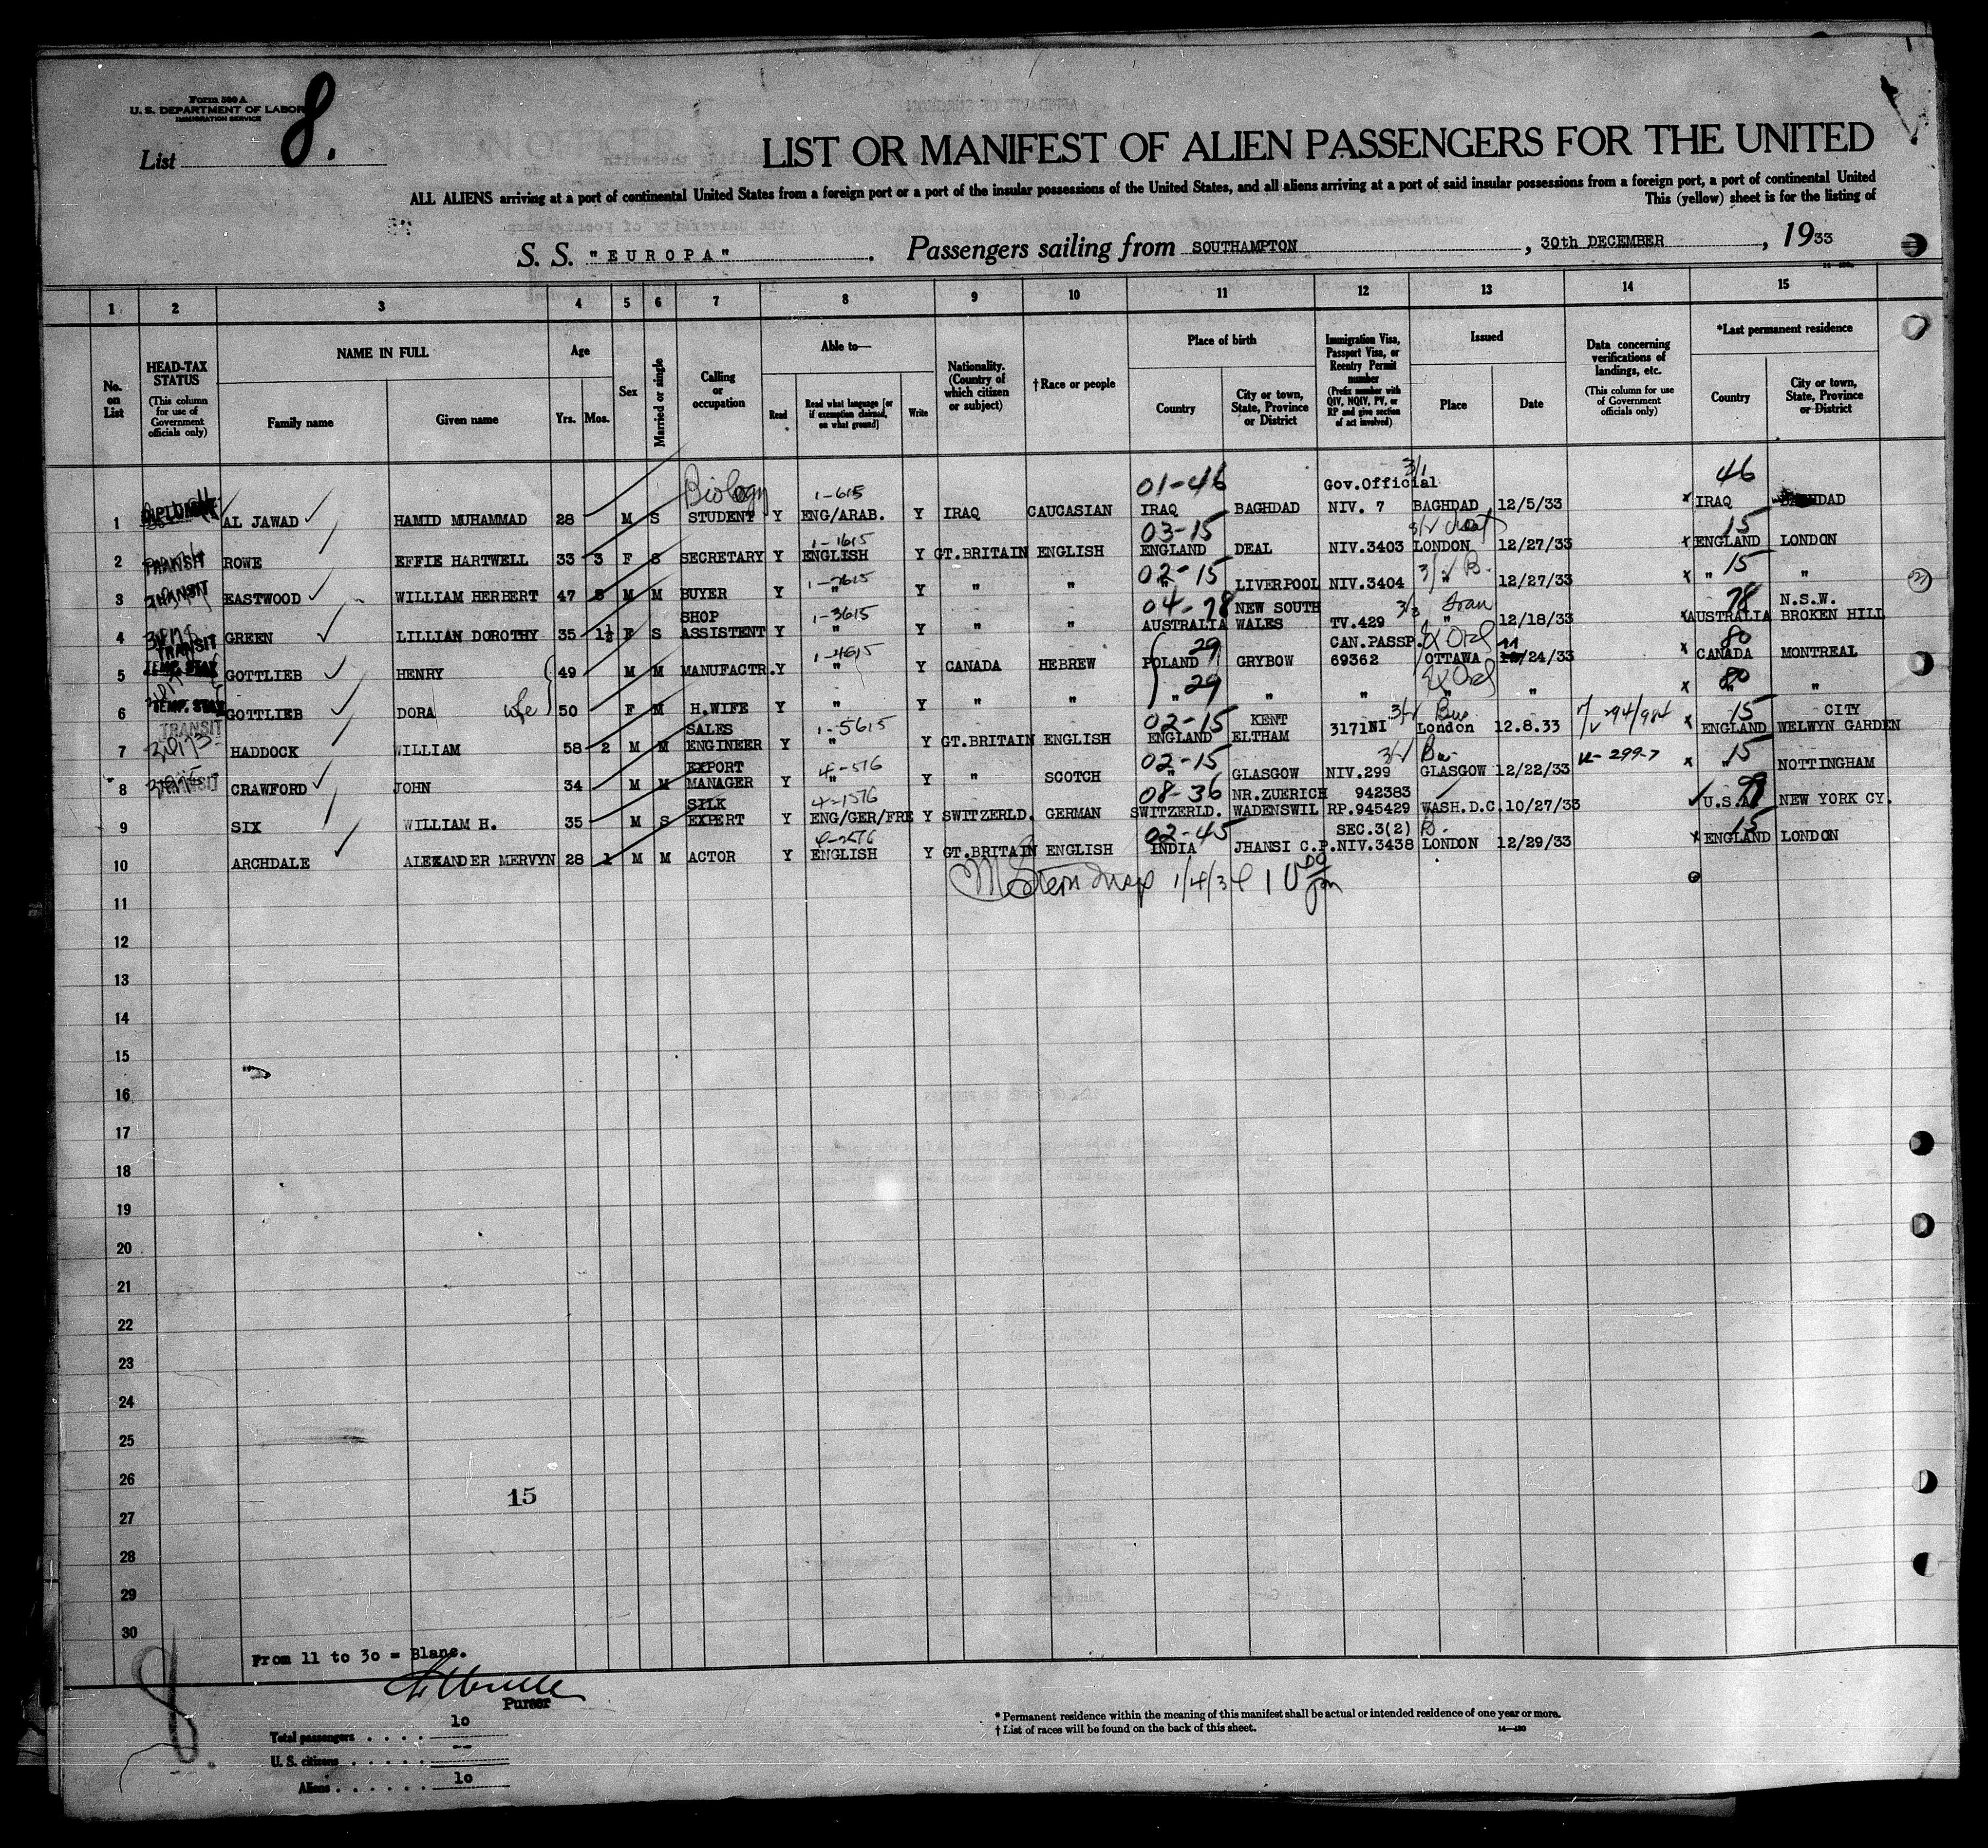 Form 500 A
U. S. DEPARTMENT OF LABOR
IMMIGRATION SERVICE
List 8.
LIST OR MANIFEST OF ALIEN PASSENGERS FOR THE UNITED
ALL ALIENS arriving at a port of continental United States from a foreign port or a port of the insular possessions of the United States, and all aliens arriving at a port of said insular possessions from a foreign port, a port of continental United
This (yellow) sheet is for the listing of
S. S. "EUROPA" . Passengers sailing from SOUTHAMPTON , 30th DECEMBER , 1933
1 2 3 4 5 6 7 8 9 10 11 12 13 14 15
No. on List
HEAD-TAX STATUS (This column for use of Government officials only)
NAME IN FULL
Family name Given name
Age
Yrs. Mos.
Sex
Married or single
Calling or occupation
Able to—
Read Read what language [or if exemption claimed, on what ground] Write
Nationality. (Country of which citizen or subject)
†Race or people
Place of birth
Country City or town, State, Province or District
Immigration Visa, Passport Visa, or Reentry Permit number (Prefix number with QIV, NQIV, PV, or RP and give section of act involved)
Issued
Place Date
Data concerning verifications of landings, etc. (This column for use of Government officials only)
*Last permanent residence
Country City or town, State, Province or District
Biology 1-615 01-46 Gov.Official 3/1 46
1 DIPLOMAT AL JAWAD HAMID MUHAMMAD 28 M S STUDENT Y ENG/ARAB. Y IRAQ CAUCASIAN IRAQ BAGHDAD NIV. 7 BAGHDAD 12/5/33 x IRAQ BAGHDAD
1-1615 03-15 15
2 TRANSIT ROWE EFFIE HARTWELL 33 3 F S SECRETARY Y ENGLISH Y GT.BRITAIN ENGLISH ENGLAND DEAL NIV.3403 LONDON 12/27/33 x ENGLAND LONDON
1-2615 02-15 B. 15
3 TRANSIT EASTWOOD WILLIAM HERBERT 47 8 M M BUYER Y " Y " " " LIVERPOOL NIV.3404 " 12/27/33 x " "
SHOP 1-3615 04-78 NEW SOUTH 3/3 78 N.S.W.
4 TRANSIT GREEN LILLIAN DOROTHY 35 1½ F S ASSISTENT Y " Y " " AUSTRALIA WALES TV.429 " 12/18/33 x AUSTRALIA BROKEN HILL
TEMP. STAY 1-4615 29 CAN.PASSP. 80
5 GOTTLIEB HENRY 49 M M MANUFACTR. Y " Y CANADA HEBREW POLAND GRYBOW 69362 OTTAWA 11/24/33 x CANADA MONTREAL
TEMP. STAY 29 80
6 GOTTLIEB DORA wife 50 F M H.WIFE Y " Y " " " " " " " x " "
TRANSIT SALES 1-5615 02-15 KENT Bus 15 CITY
7 HADDOCK WILLIAM 58 2 M M ENGINEER Y " Y GT.BRITAIN ENGLISH ENGLAND ELTHAM 3171NI London 12.8.33 x ENGLAND WELWYN GARDEN
EXPORT 4-576 02-15 15
8 TRANSIT CRAWFORD JOHN 34 M M MANAGER Y " Y " SCOTCH " GLASGOW NIV.299 GLASGOW 12/22/33 x " NOTTINGHAM
SILK 4-1576 08-36 NR.ZUERICH 942383
9 SIX WILLIAM H. 35 M S EXPERT Y ENG/GER/FRE Y SWITZERLD. GERMAN SWITZERLD. WADENSWIL RP.945429 WASH.D.C. 10/27/33 U.S.A. NEW YORK CY.
4-2576 02-45 SEC.3(2) B. 15
10 ARCHDALE ALEXANDER MERVYN 28 1 M M ACTOR Y ENGLISH Y GT.BRITAIN ENGLISH INDIA JHANSI C.P. NIV.3438 LONDON 12/29/33 x ENGLAND LONDON
M Stern Insp 1/4/34
11
12
13
14
15
16
17
18
19
20
21
22
23
24
25
26
15
27
28
29
30
From 11 to 30 = Blanc.
Purser
8
Total passengers . . . . 10
U. S. citizens . . . . . --
Aliens . . . . . . 10
* Permanent residence within the meaning of this manifest shall be actual or intended residence of one year or more.
† List of races will be found on the back of this sheet. 14—430